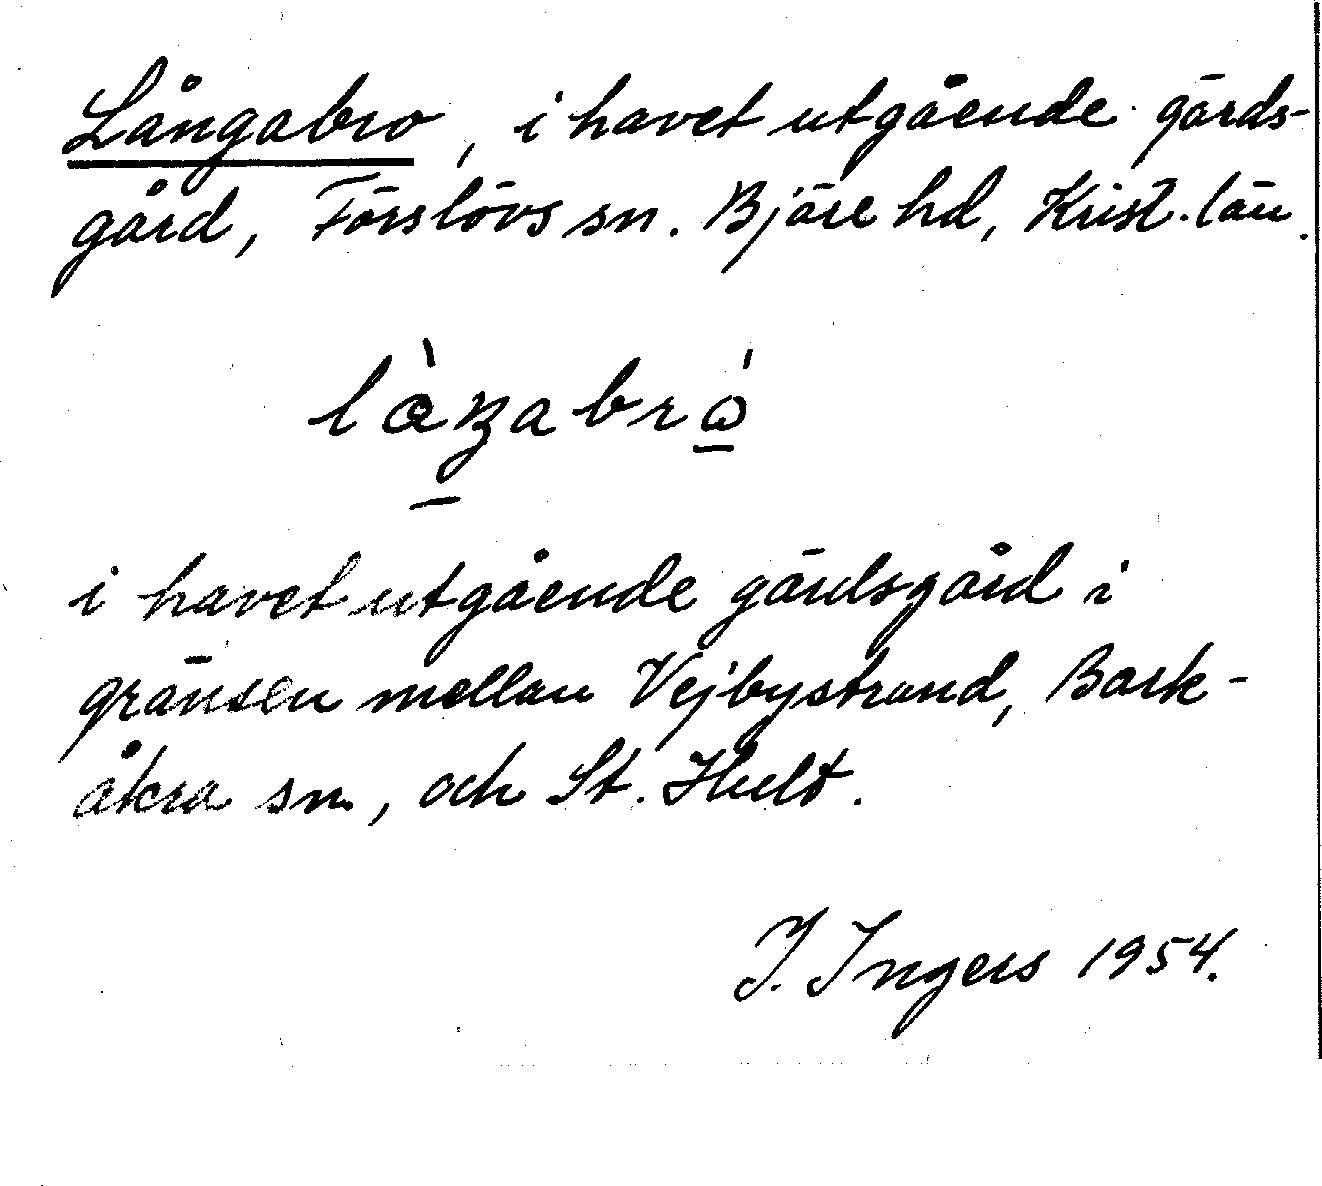 Långabro, i havet utgående gärds-
gård, Förslövs sn. Bjäre hd, Krist. län.
làŋabró
i havet utgående gärdsgård i
gränsen mellan Vejbystrand, Bark-
åkra sn, och St. Hult.
I. Ingers 1954.